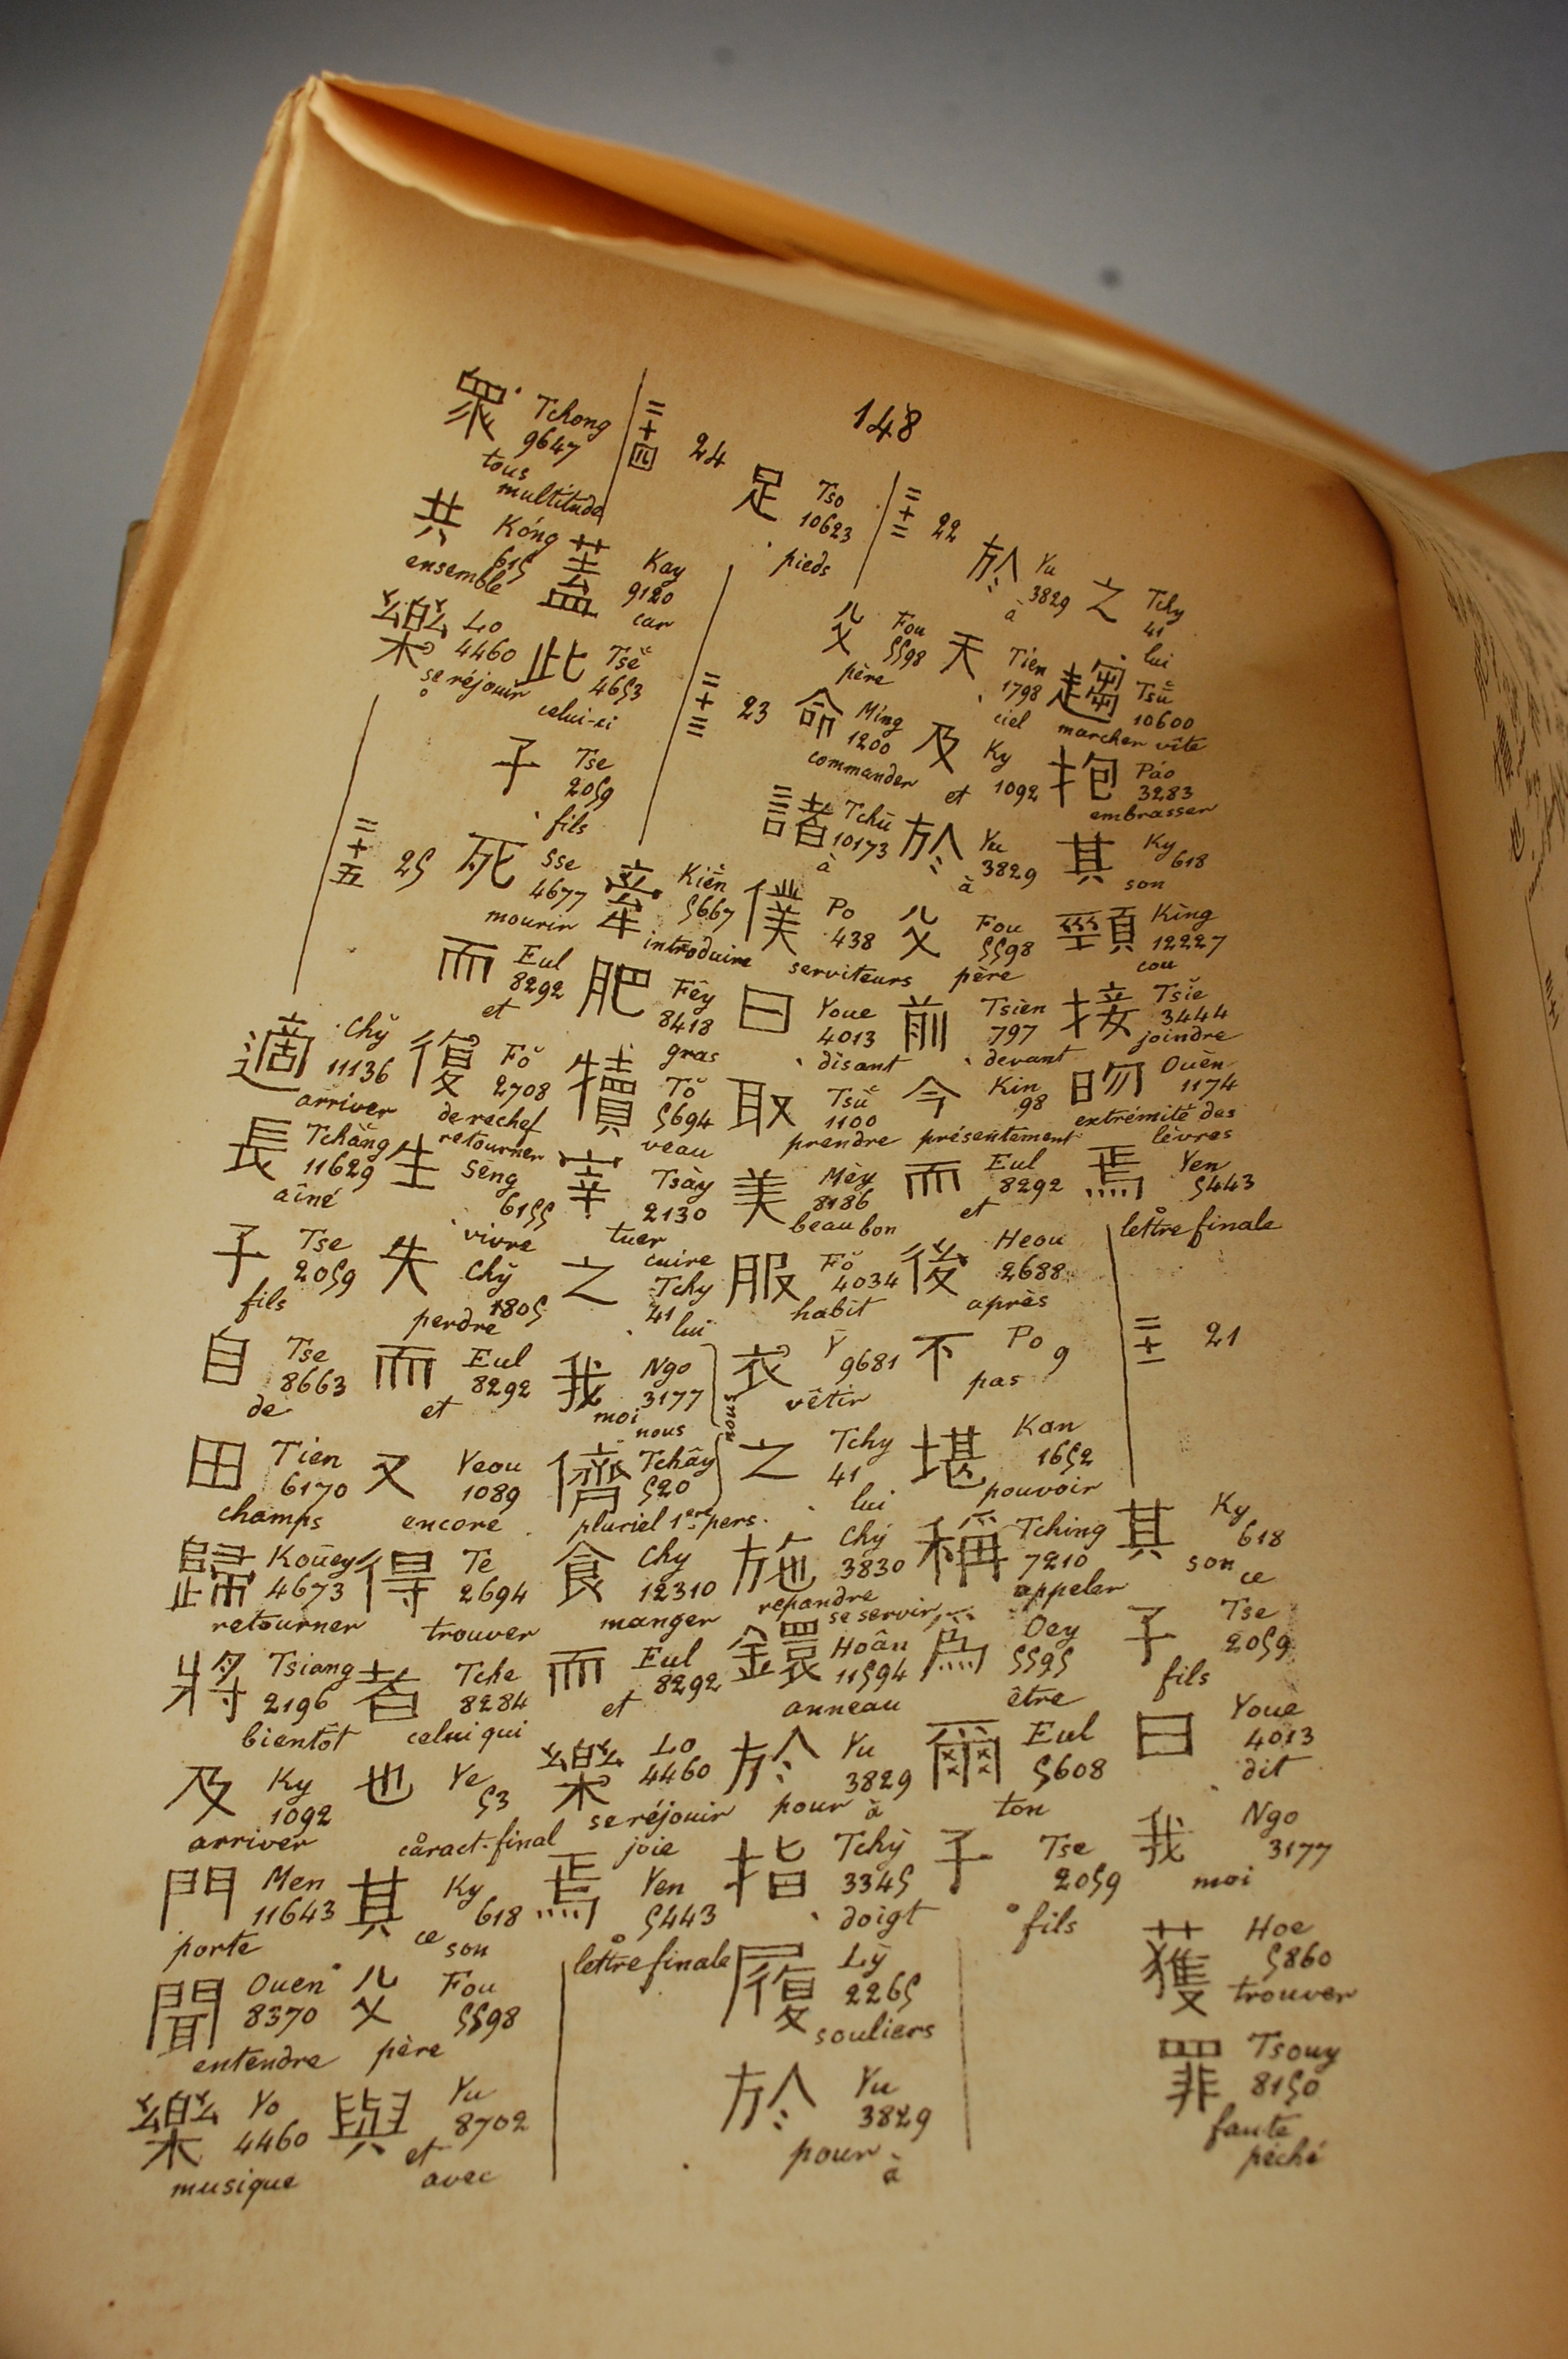 148
之 Tchy 41 lui
趨 Tsŭ 10600 marcher vite
抱 Páo 3283 embrasser
其 Ky 618 son
頸 Kìng 12227 cou
接 Tsĭe 3444 joindre
吻 Ouèn 1174 extrémité des lèvres
焉 Yen 5443 lettre finale
二十一 21
其 Ky 618 son ce
子 Tse 2059 fils
曰 Youe 4013 dit
我 Ngo 3177 moi
獲 Hoe 5860 trouver
罪 Tsouy 8150 faute péché
於 Yu 3829 à
天 Tien 1798 ciel
及 Ky 1092 et
於 Yu 3829 à
父 Fou 5598 père
前 Tsièn 797 devant
今 Kin 98 présentement
而 Eul 8292 et
後 Heou 2688 après
不 Po 9 pas
堪 Kan 1652 pouvoir
稱 Tching 7210 appeler
為 Oey 5595 être
爾 Eul 5608 ton
子 Tse 2059 fils
二十二 22
父 Fou 5598 père
命 Ming 1200 commander
諸 Tchū 10173 à
僕 Po 438 serviteurs
曰 Youe 4013 disant
取 Tsŭ 1100 prendre
美 Mèy 8186 beau bon
服 Fŏ 4034 habit
衣 Y 9681 vêtir
之 Tchy 41 lui
施 Chy 3830 répandre se servir
鐶 Hoân 11594 anneau
於 Yu 3829 pour à
指 Tchỳ 3345 doigt
履 Lỳ 2265 souliers
於 Yu 3829 pour à
足 Tso 10623 pieds
二十三 23
牽 Kiēn 5667 introduire
肥 Fêy 8418 gras
犢 Tŏ 5694 veau
宰 Tsày 2130 tuer cuire
之 Tchy 41 lui
我 Ngo 3177 moi nous
nous
儕 Tchây 520 pluriel 1ère pers.
食 Chy 12310 manger
而 Eul 8292 et
樂 Lo 4460 se réjouir joie
焉 Yen 5443 lettre finale
二十四 24
蓋 Kay 9120 car
此 Tsĕ 4653 celui-ci
子 Tse 2059 fils
死 Sse 4677 mourir
而 Eul 8292 et
復 Fŏ 2708 derechef retourner
生 Seng 6155 vivre
失 Chy 1805 perdre
而 Eul 8292 et
又 Yeou 1089 encore
得 Te 2694 trouver
者 Tche 8284 celui qui
也 Ye 53 caract. final
其 Ky 618 ce son
父 Fou 5598 père
與 Yu 8702 et avec
眾 Tchong 9647 tous multitude
共 Kóng 615 ensemble
樂 Lo 4460 se réjouir
二十五 25
適 Chy 11136 arriver
長 Tchăng 11629 aîné
子 Tse 2059 fils
自 Tse 8663 de
田 Tien 6170 champs
歸 Koūey 4673 retourner
將 Tsiang 2196 bientôt
及 Ky 1092 arriver
門 Men 11643 porte
聞 Ouen 8370 entendre
樂 Yo 4460 musique